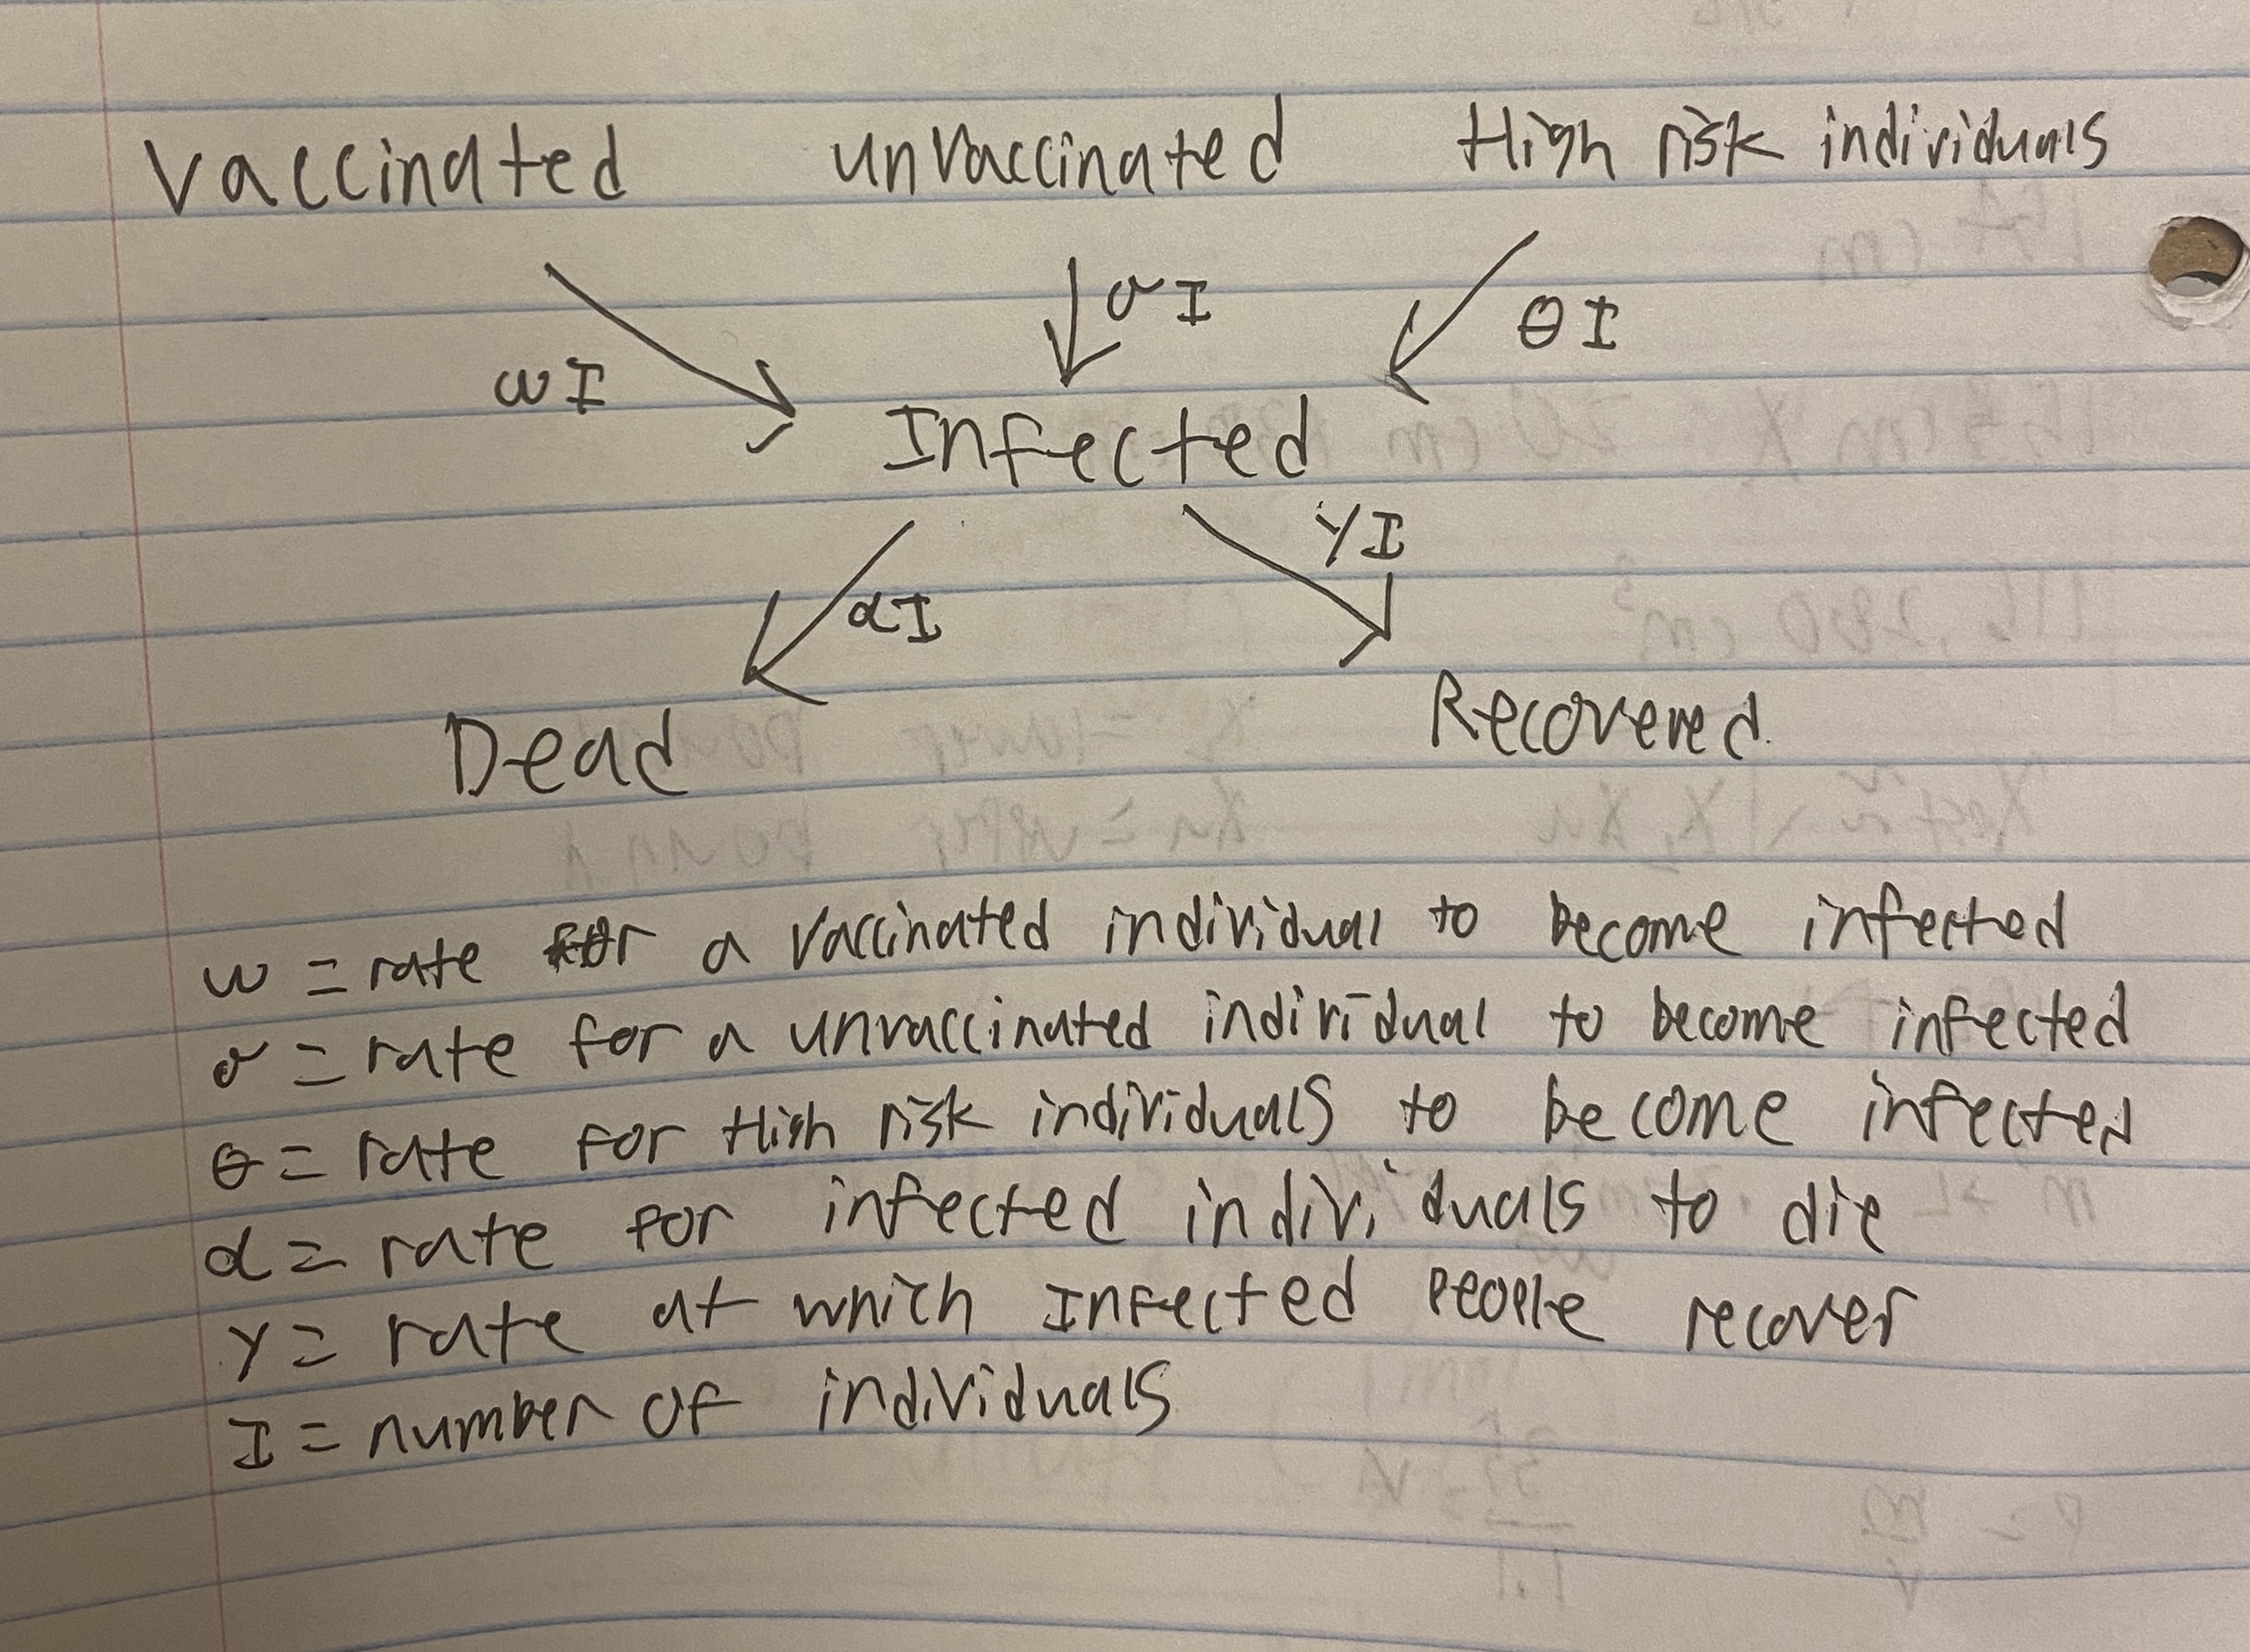 Vaccinated unvaccinated High risk individuals
ωI σI θI
Infected
αI γI
Dead Recovered
ω = rate for a vaccinated individual to become infected
σ = rate for a unvaccinated individual to become infected
θ = rate for High risk individuals to become infected
α = rate for infected individuals to die
γ = rate at which Infected people recover
I = number of individuals